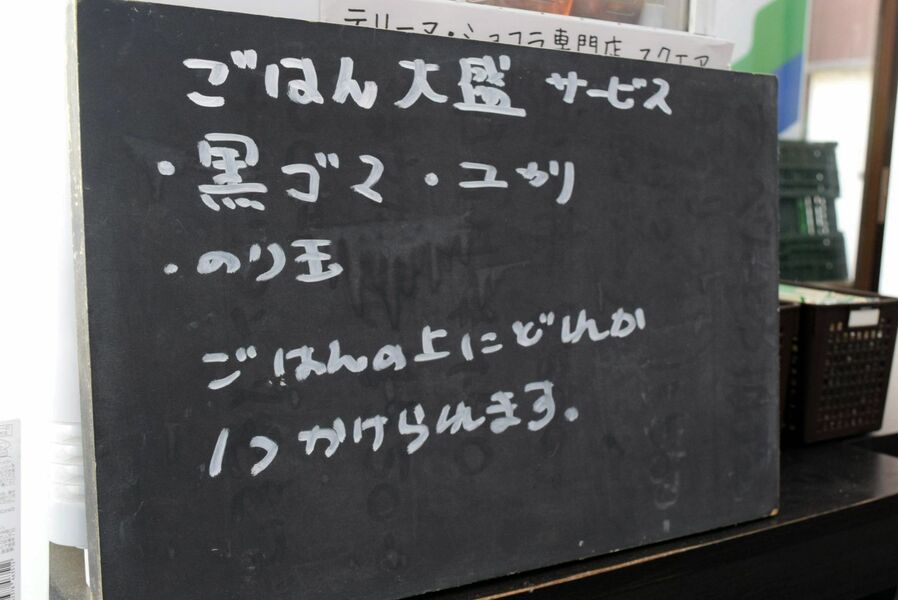 テリーヌ・ショコラ専門店 スクエア
ごはん大盛 サービス
・黒ゴマ ・ユカリ
・のり玉
ごはんの上にどれか
1つかけられます。